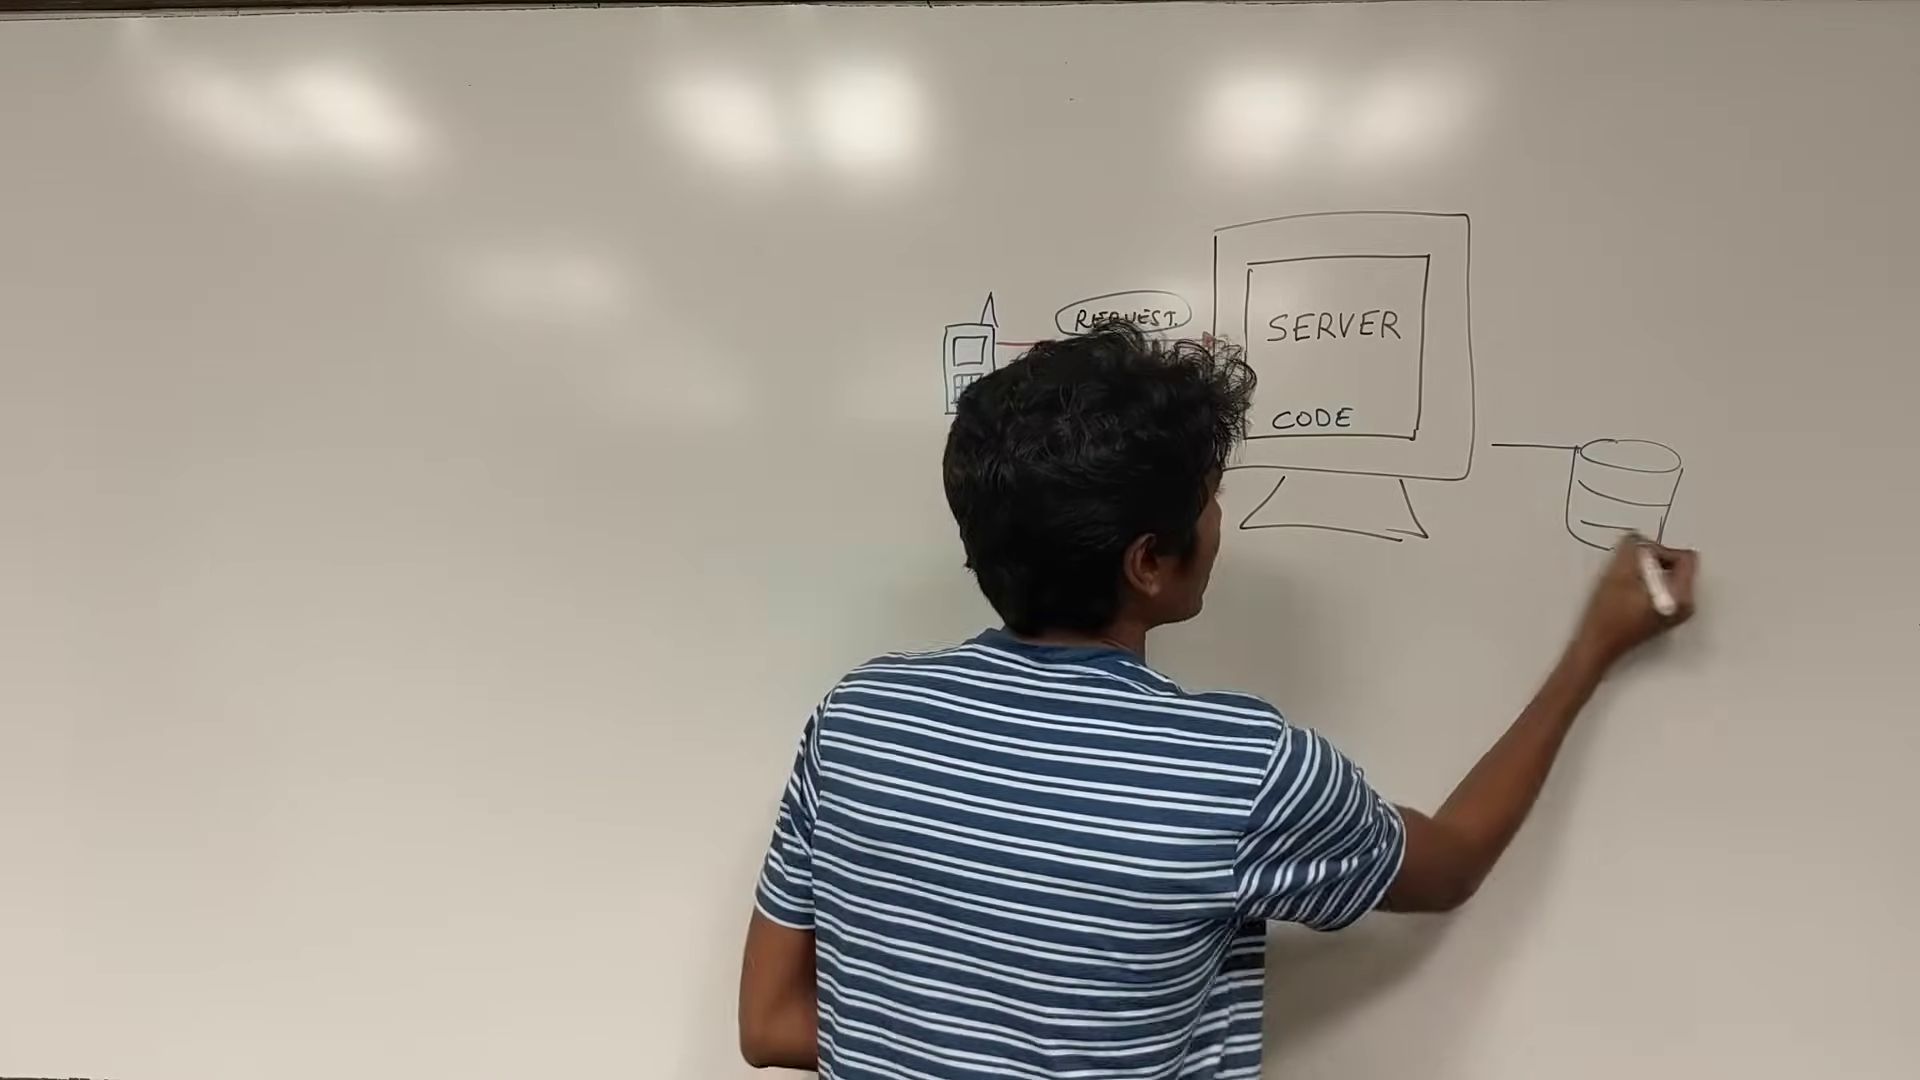 REQUEST.
SERVER
CODE